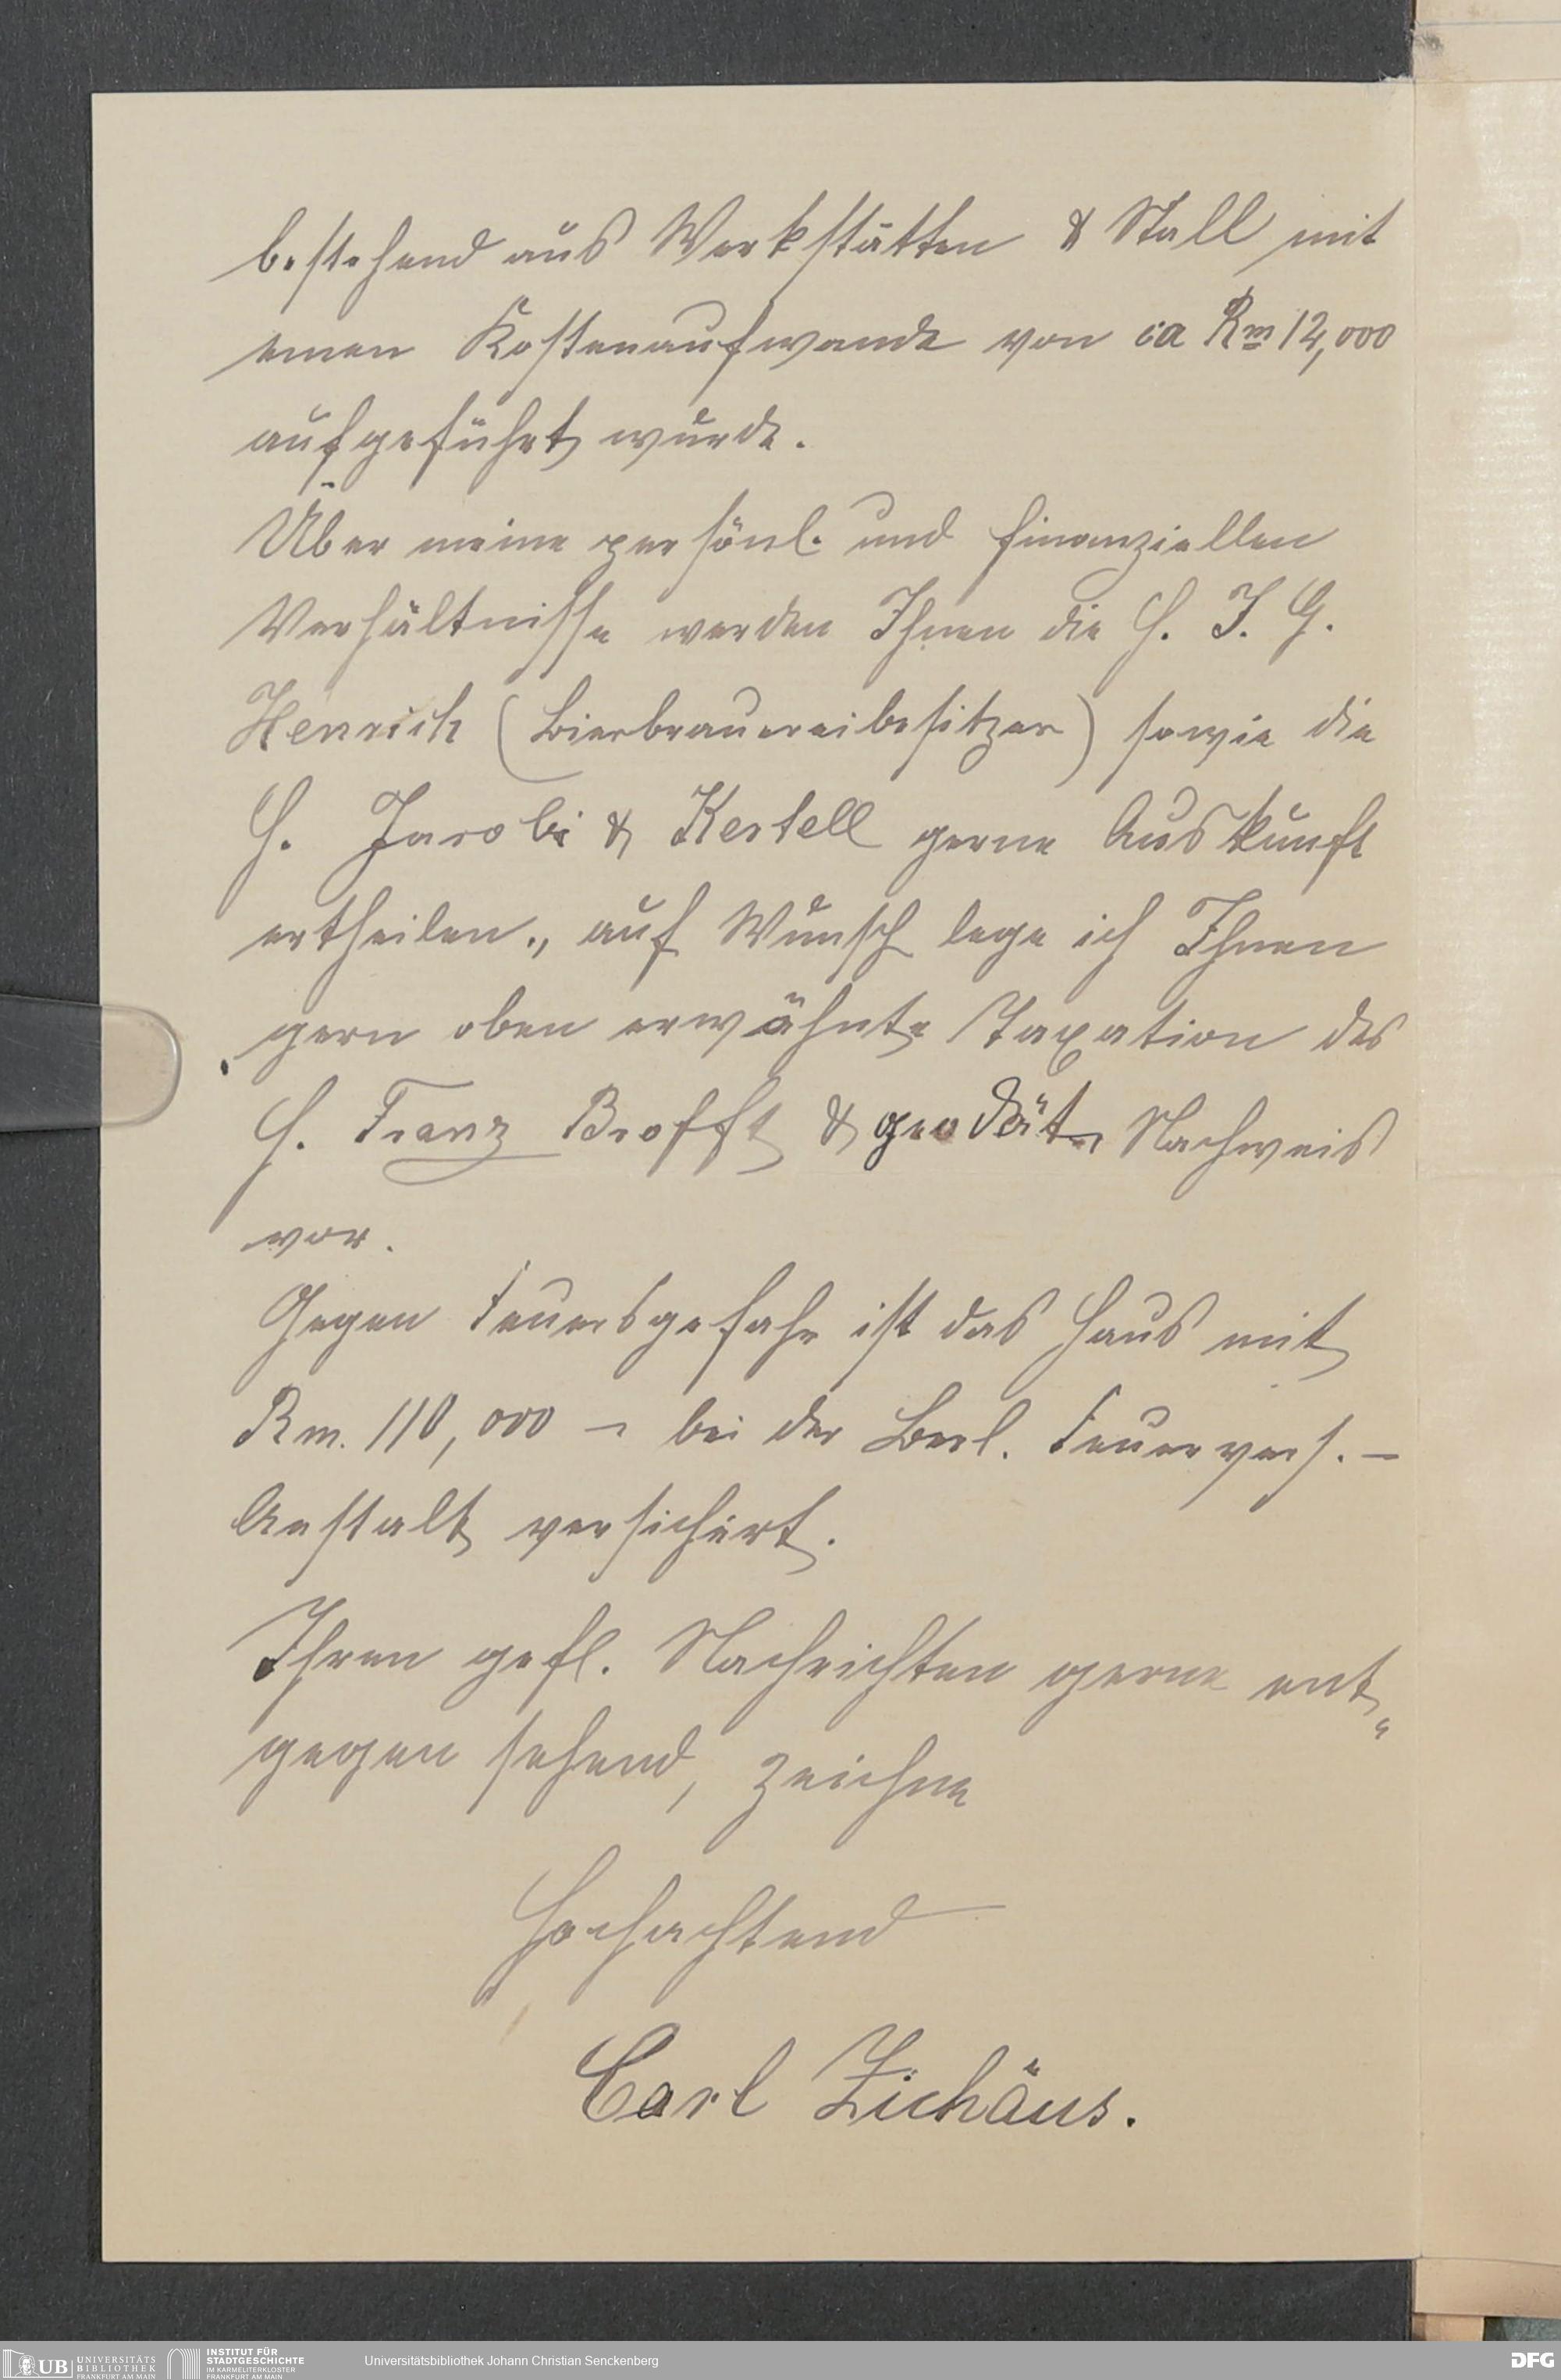 bestehend aus Werkstätten & Stall mit
einen Kostenaufwande von ca Rm 12,000
aufgeführt wurde.
Über meine persönl. und finanziellen
Verhältnisse werden Ihnen die H. J. G.
Henrich (Bierbrauereibesitzer) sowie die
H. Jacobi & Kestell gerne Auskunft
ertheilen., auf Wunsch lege ich Ihnen
gern oben erwähnte Taxation des
H. Franz Brofft & geodät. Nachweis
vor.
Gegen Feuersgefahr ist das Haus mit
Rm. 110,000 – bei der Berl. Feuervers. –
Anstalt versichert.
Ihren gefl. Nachrichten gerne ent„
gegen sehend, zeichne
Hochachtend
Carl Zichäus.
UB UNIVERSITÄTS
BIBLIOTHEK
FRANKFURT AM MAIN
INSTITUT FÜR
STADTGESCHICHTE
IM KARMELITERKLOSTER
FRANKFURT AM MAIN
Universitätsbibliothek Johann Christian Senckenberg
DFG